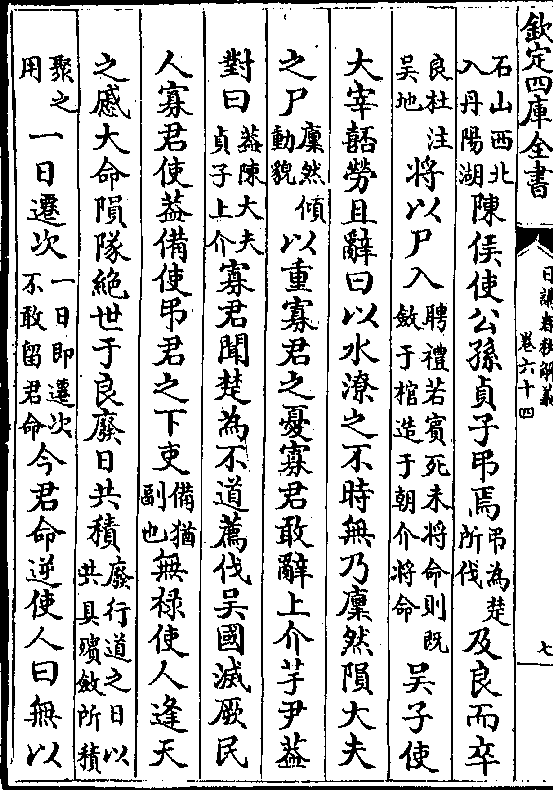 欽定四庫全書
日講春秋解義
卷六十四
七
石山西北入丹陽湖陳侯使公孫貞子弔焉弔為楚所伐及良而卒
良杜注吳地將以尸入聘禮若賓死未將命則既斂于棺造于朝介將命吳子使
大宰嚭勞且辭曰以水潦之不時無乃廩然隕大夫
之尸廩然傾動貌以重寡君之憂寡君敢辭上介芋尹蓋
對曰蓋陳大夫貞子上介寡君聞楚為不道薦伐吳國滅厥民
人寡君使蓋備使弔君之下吏備猶副也無祿使人逢天
之慼大命隕隊絶世于良廢日共積廢行道之日以共具殯斂所積
聚之用一日遷次一日即遷次不敢留君命今君命逆使人曰無以